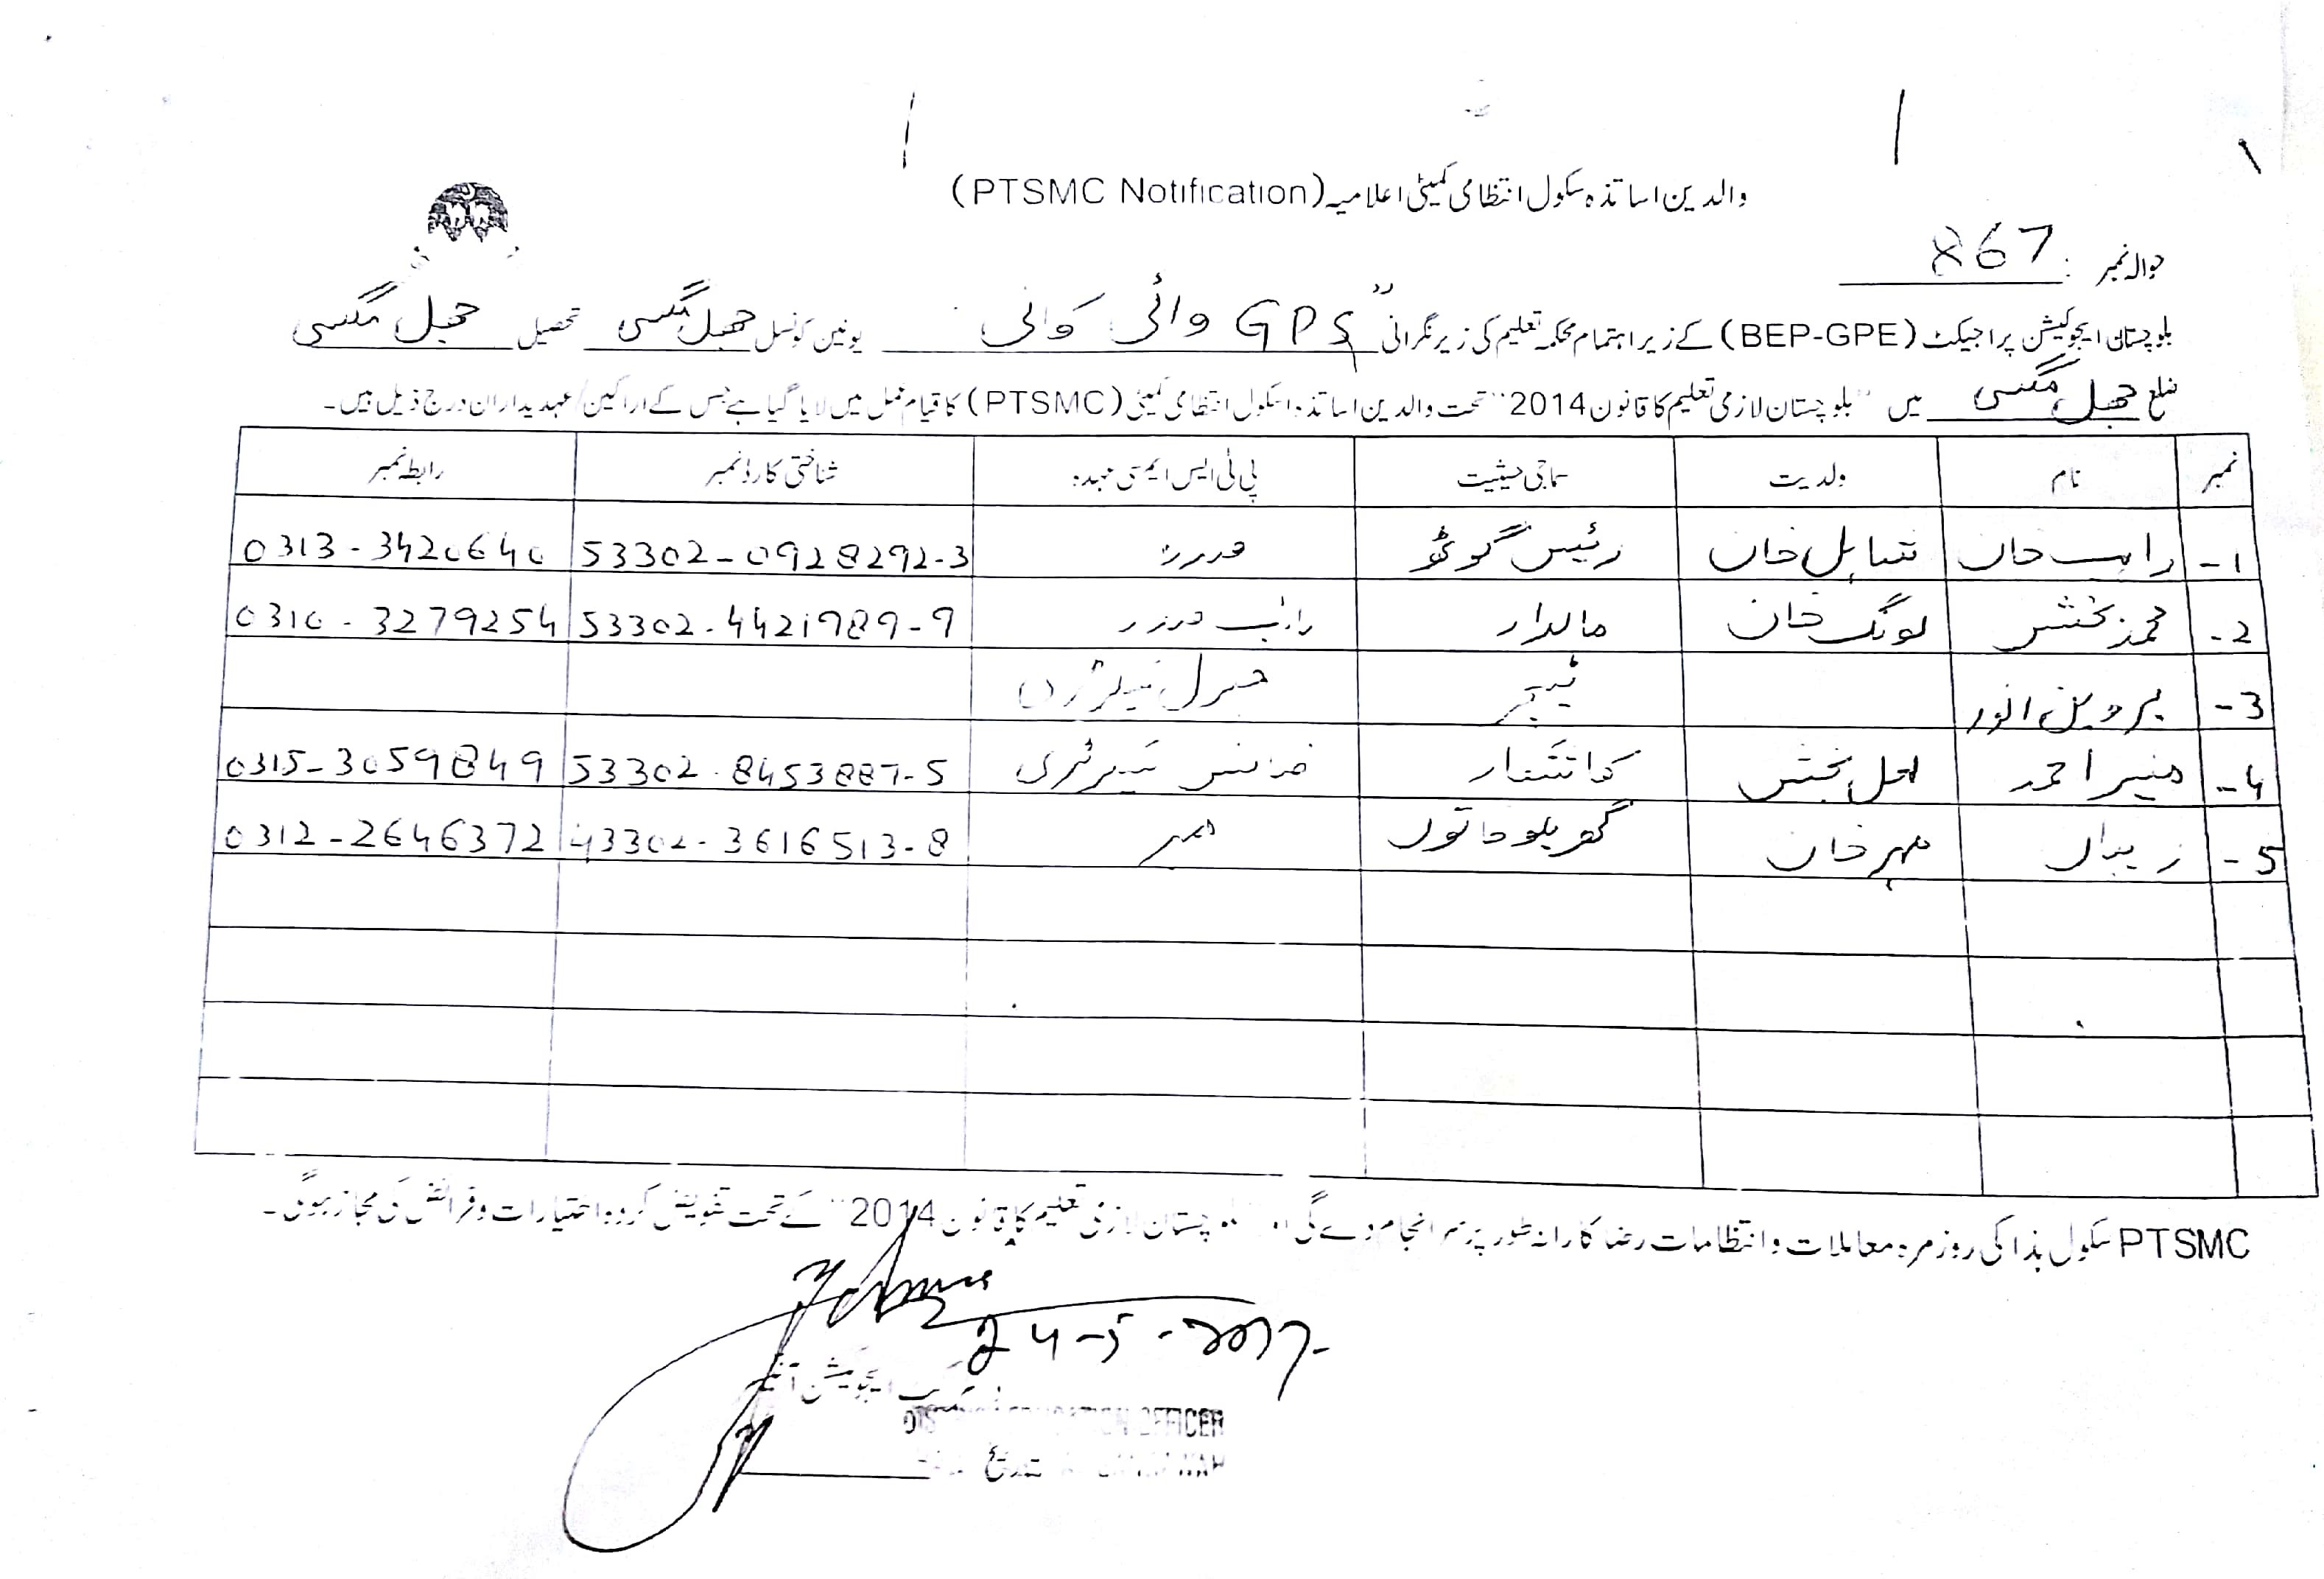 والدین اساتذہ سکول انتظامی کمیٹی اعلامیہ (PTSMC Notification)
حوالہ نمبر : 867
بلوچستان ایجوکیشن پراجیکٹ (BEP-GPE) کے زیر اہتمام محکمہ تعلیم کی زیر نگرانی GPS وائی کوانی یونین کونسل جھل مگسی تحصیل جھل مگسی
ضلع جھل مگسی میں "بلوچستان لازمی تعلیم کا قانون 2014" تحت والدین اساتذہ اسکول انتظامی کمیٹی (PTSMC) کا قیام عمل میں لایا گیا ہے جس کے اراکین/عہدیداران درج ذیل ہیں۔
نمبر نام ولدیت سماجی حیثیت پی ٹی ایس ایم سی عہدہ شناختی کارڈ نمبر رابطہ نمبر
1- خان خان رئیس گوٹھ 53302-0928292-3 0313-3420640
2- محمد بخش لونگ خان مالدار 53302-4421989-9 0310-3279254
3- پروین انور ٹیچر جنرل سیکرٹری
4- منیر احمد لعل بخش کاشتکار فنانس سیکرٹری 53302-8453887-5 0315-3059849
5- مہر خان گھریلو خاتون ممبر 43302-3616513-8 0312-2646372
PTSMC سکول ہذا کی روزمرہ معاملات و انتظامات رضا کارانہ طور پر سر انجام دے گی اور بلوچستان لازمی تعلیم کا قانون 2014" کے تحت تفویض کردہ اختیارات و فرائض کی مجاز ہوگی۔
24-5-2017
ڈسٹرکٹ ایجوکیشن آفیسر
DISTRICT EDUCATION OFFICER